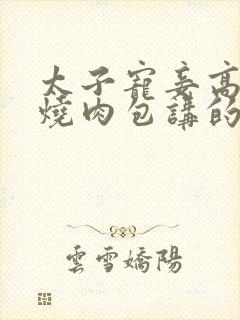 太子寵妾高
燒肉包講的
雲雪嬌陽